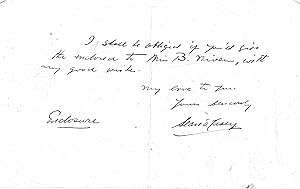 I shall be obliged if you'd give
the enclosed to Miss B. Niven, with
my good wishes.
My love to you.
Yours sincerely
Enclosure